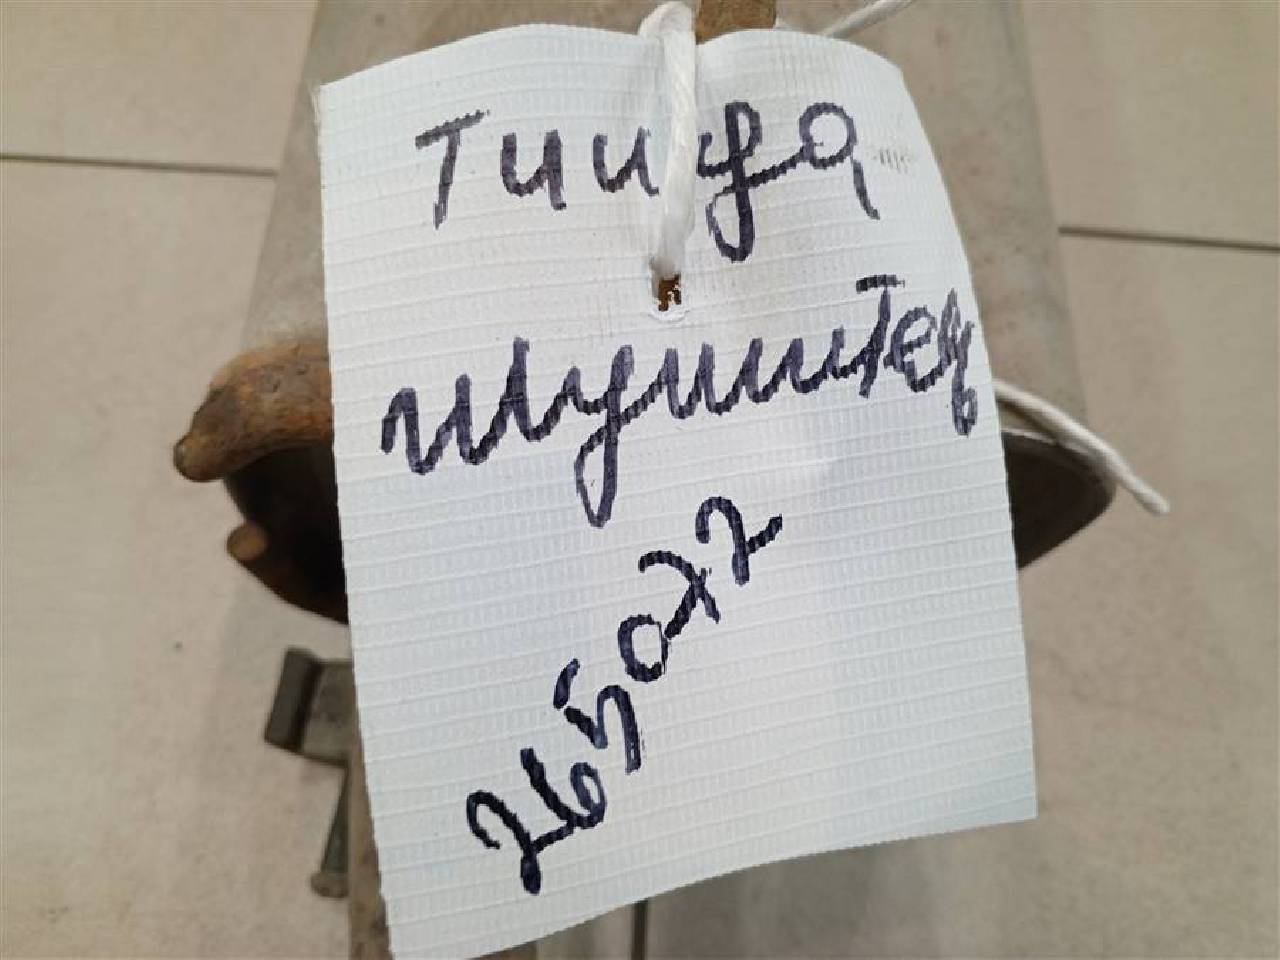 Тиида
глушитель
265072